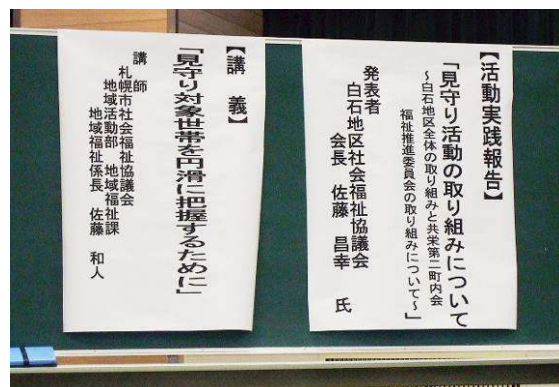 【活動実践報告】
「見守り活動の取り組みについて
～白石地区全体の取り組みと共栄第二町内会
福祉推進委員会の取り組みについて～」
発表者
白石地区社会福祉協議会
会長 佐藤 昌幸 氏
【講義】
「見守り対象世帯を円滑に把握するために」
講師
札幌市社会福祉協議会
地域活動部 地域福祉課
地域福祉係長 佐藤 和人